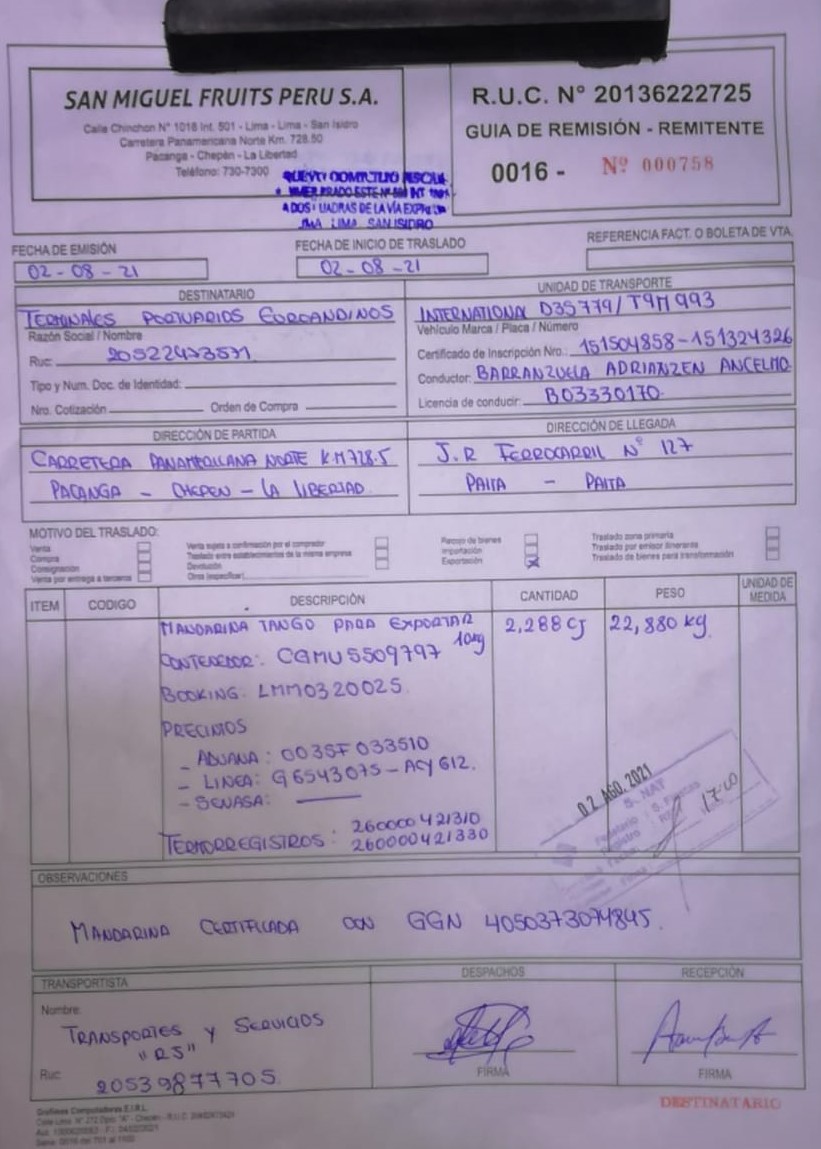 SAN MIGUEL FRUITS PERU S.A.
Calle Chinchon N° 1018 Int. 501 - Lima - Lima - San Isidro
Carretera Panamericana Norte Km. 728.50
Pacanga - Chepén - La Libertad
Teléfono: 730-7300
LIMA LIMA SAN ISIDRO
R.U.C. N° 20136222725
GUIA DE REMISIÓN - REMITENTE
0016 - Nº 000758
FECHA DE EMISIÓN
02-08-21
FECHA DE INICIO DE TRASLADO
02-08-21
REFERENCIA FACT. O BOLETA DE VTA.
DESTINATARIO
TERMINALES PORTUARIOS EUROANDINOS
Razón Social / Nombre
Ruc: 20522473571
Tipo y Num. Doc. de Identidad:
Nro. Cotización Orden de Compra
UNIDAD DE TRANSPORTE
INTERNATIONAL D3S779/T9M993
Vehículo Marca / Placa / Número
Certificado de Inscripción Nro.: 151504858-151324326
Conductor: BARRANZUELA ADRIANZEN ANCELMO
Licencia de conducir: B03330170
DIRECCIÓN DE PARTIDA
CARRETERA PANAMERICANA NORTE KM728.5
PACANGA - CHEPEN - LA LIBERTAD
DIRECCIÓN DE LLEGADA
J.R FERROCARRIL N° 127
PAITA - PAITA
MOTIVO DEL TRASLADO:
Venta
Compra
Consignación
Venta por entrega a terceros
Venta sujeta a confirmación por el comprador
Traslado entre establecimientos de la misma empresa
Devolución
Otros (especificar)
Recojo de bienes
Importación
Exportación X
Traslado zona primaria
Traslado por emisor itinerante
Traslado de bienes para transformación
ITEM CODIGO DESCRIPCIÓN CANTIDAD PESO UNIDAD DE MEDIDA
MANDARINA TANGO PARA EXPORTAR 10kg 2,288 CJ 22,880 kg.
CONTENEDOR: CGMU5509797
BOOKING: LMM0320025
PRECINTOS
- ADUANA: 0035F033510
- LINEA: G6543075-ACY612.
- SENASA:
TERMORREGISTROS: 260000421310
260000421330
02 AGO. 2021
17:00
OBSERVACIONES
MANDARINA CERTIFICADA CON GGN 4050373074845.
TRANSPORTISTA
Nombre:
TRANSPORTES Y SERVICIOS
"RS"
Ruc: 20539877705
DESPACHOS
FIRMA
RECEPCIÓN
FIRMA
DESTINATARIO